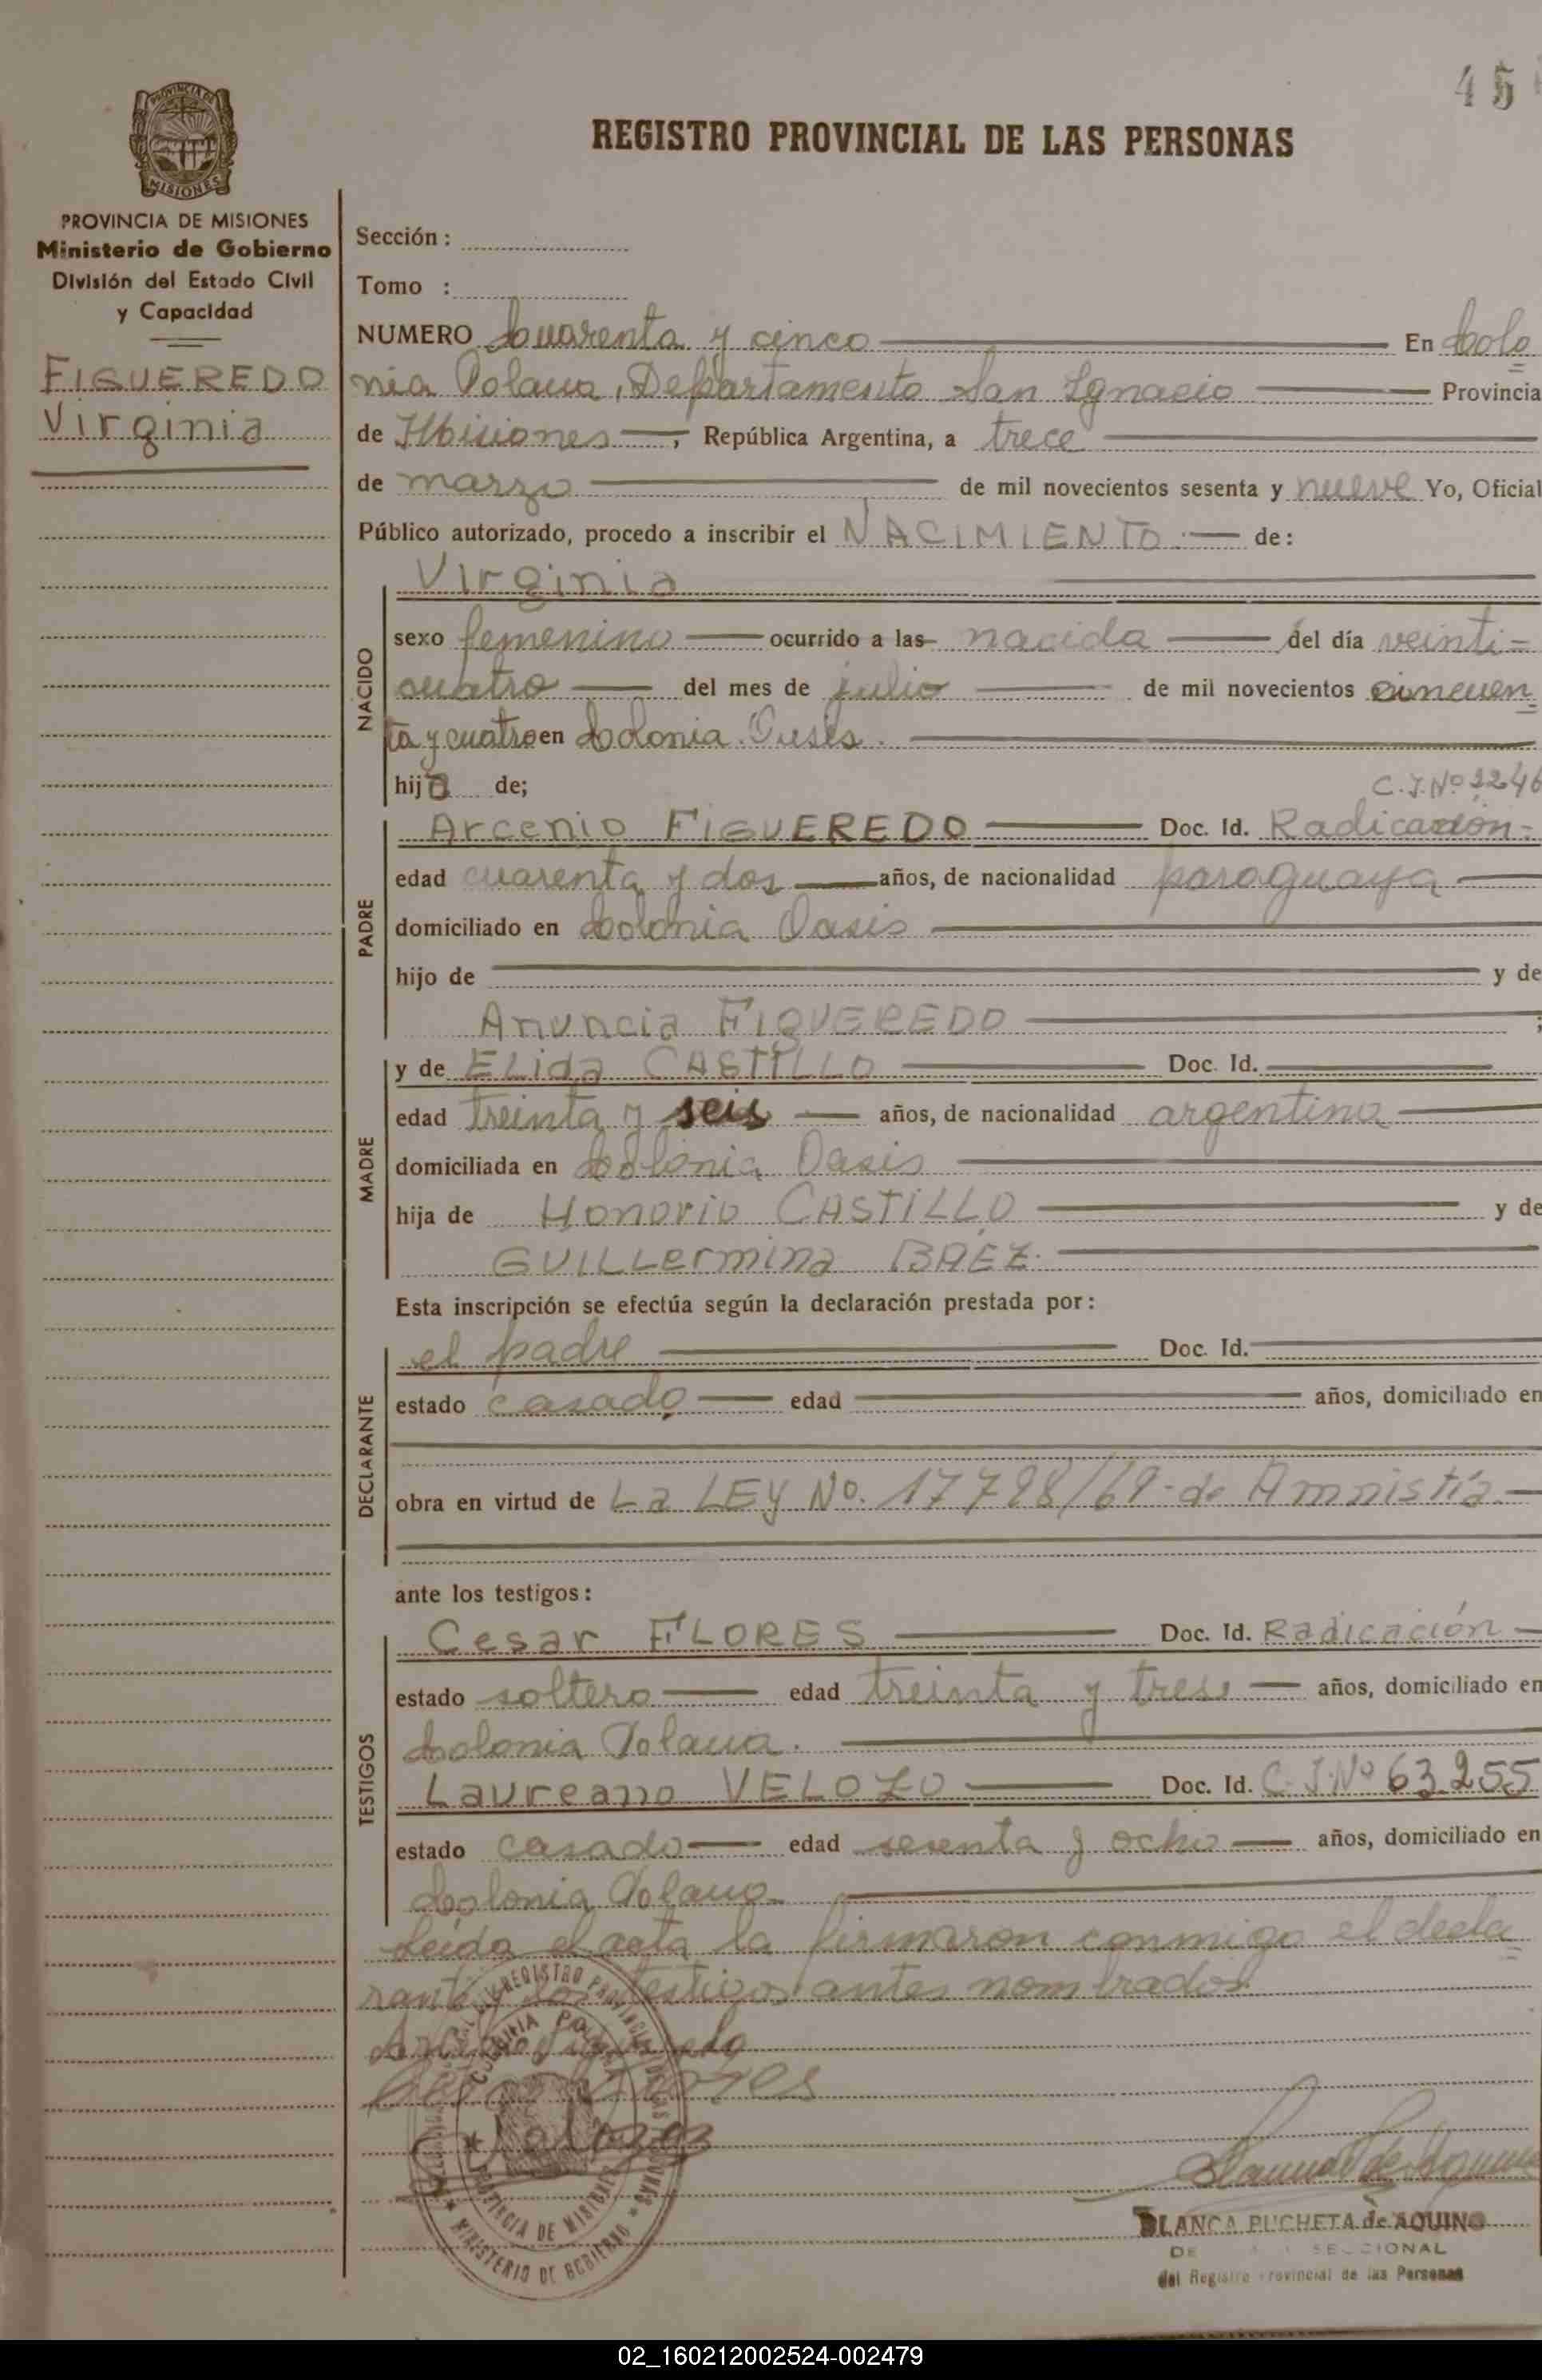 45
PROVINCIA DE MISIONES
REGISTRO PROVINCIAL DE LAS PERSONAS
PROVINCIA DE MISIONES
Ministerio de Gobierno
División del Estado Civil
y Capacidad
FIGUEREDO
Virginia
Sección :
Tomo :
NUMERO Cuarenta y cinco En Colo
nia Polana, Departamento San Ignacio Provincia
de Misiones, República Argentina, a trece
de marzo de mil novecientos sesenta y nueve Yo, Oficial
Público autorizado, procedo a inscribir el NACIMIENTO.- de:
NACIDO
Virginia
sexo femenino ocurrido a las nacida del día veinti-
cuatro del mes de julio de mil novecientos cincuen
ta y cuatro en Colonia
hija de;
C.I.Nº 2246
PADRE
Arcenio FIGUEREDO Doc. Id. Radicación-
edad cuarenta y dos años, de nacionalidad paraguaya
domiciliado en Colonia Oasis
hijo de y de
Anuncia FIGUEREDO ;
MADRE
y de ELida CASTILLO Doc. Id.
edad treinta y seis años, de nacionalidad argentina
domiciliada en Colonia Oasis
hija de Honorio CASTILLO y de
GUILLermina BAÉZ.
Esta inscripción se efectúa según la declaración prestada por :
DECLARANTE
el padre Doc. Id.
estado casado edad años, domiciliado en
obra en virtud de La LEY No. /69-de Amnistía.-
ante los testigos :
TESTIGOS
Cesar FLORES Doc. Id. Radicación
estado soltero edad treinta y tres años, domiciliado en
Colonia Polana.
Laureano VELOZO Doc. Id. C.I.Nº 63.255
estado casado edad sesenta y ocho años, domiciliado en
Colonia Polana
Leída el acta la firmaron conmigo el decla
rante y los testigos antes nombrados
REGISTRO PROVINCIAL DE LAS PERSONAS
COLONIA POLANA
PROVINCIA DE MISIONES
MINISTERIO DE GOBIERNO
BLANCA PUCHETA de AQUINO
DE SECCIONAL
del Registro Provincial de las Personas
02_160212002524-002479